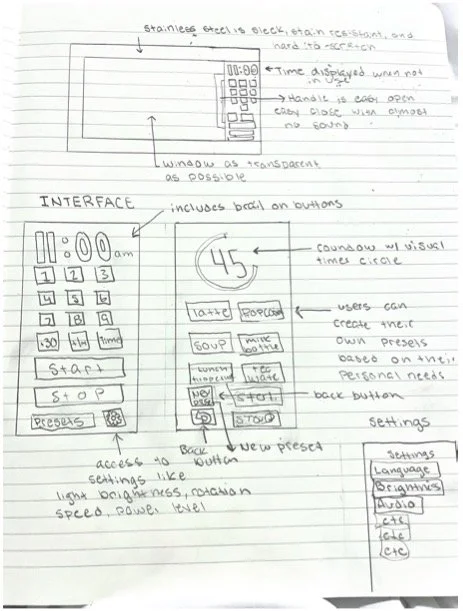 stainless steel is sleek, stain resistant, and
hard to scratch
11:00
Time displayed when not
in use
Handle is easy open
easy close with almost
no sound
window as transparent
as possible
INTERFACE
includes brail on buttons
11:00 am
1 2 3
4 5 6
7 8 9
+30 time
Start
Stop
Presets
45
coundow w/ visual
times circle
latte popcorn
soup milk bottle
lunch
new
start
stop
users can
create their
own presets
based on their
personal needs
back button
Back
button
New preset
access to
settings like
light brightness, rotation
speed, power level
settings
Settings
Language
Brightness
Audio
etc
etc
etc